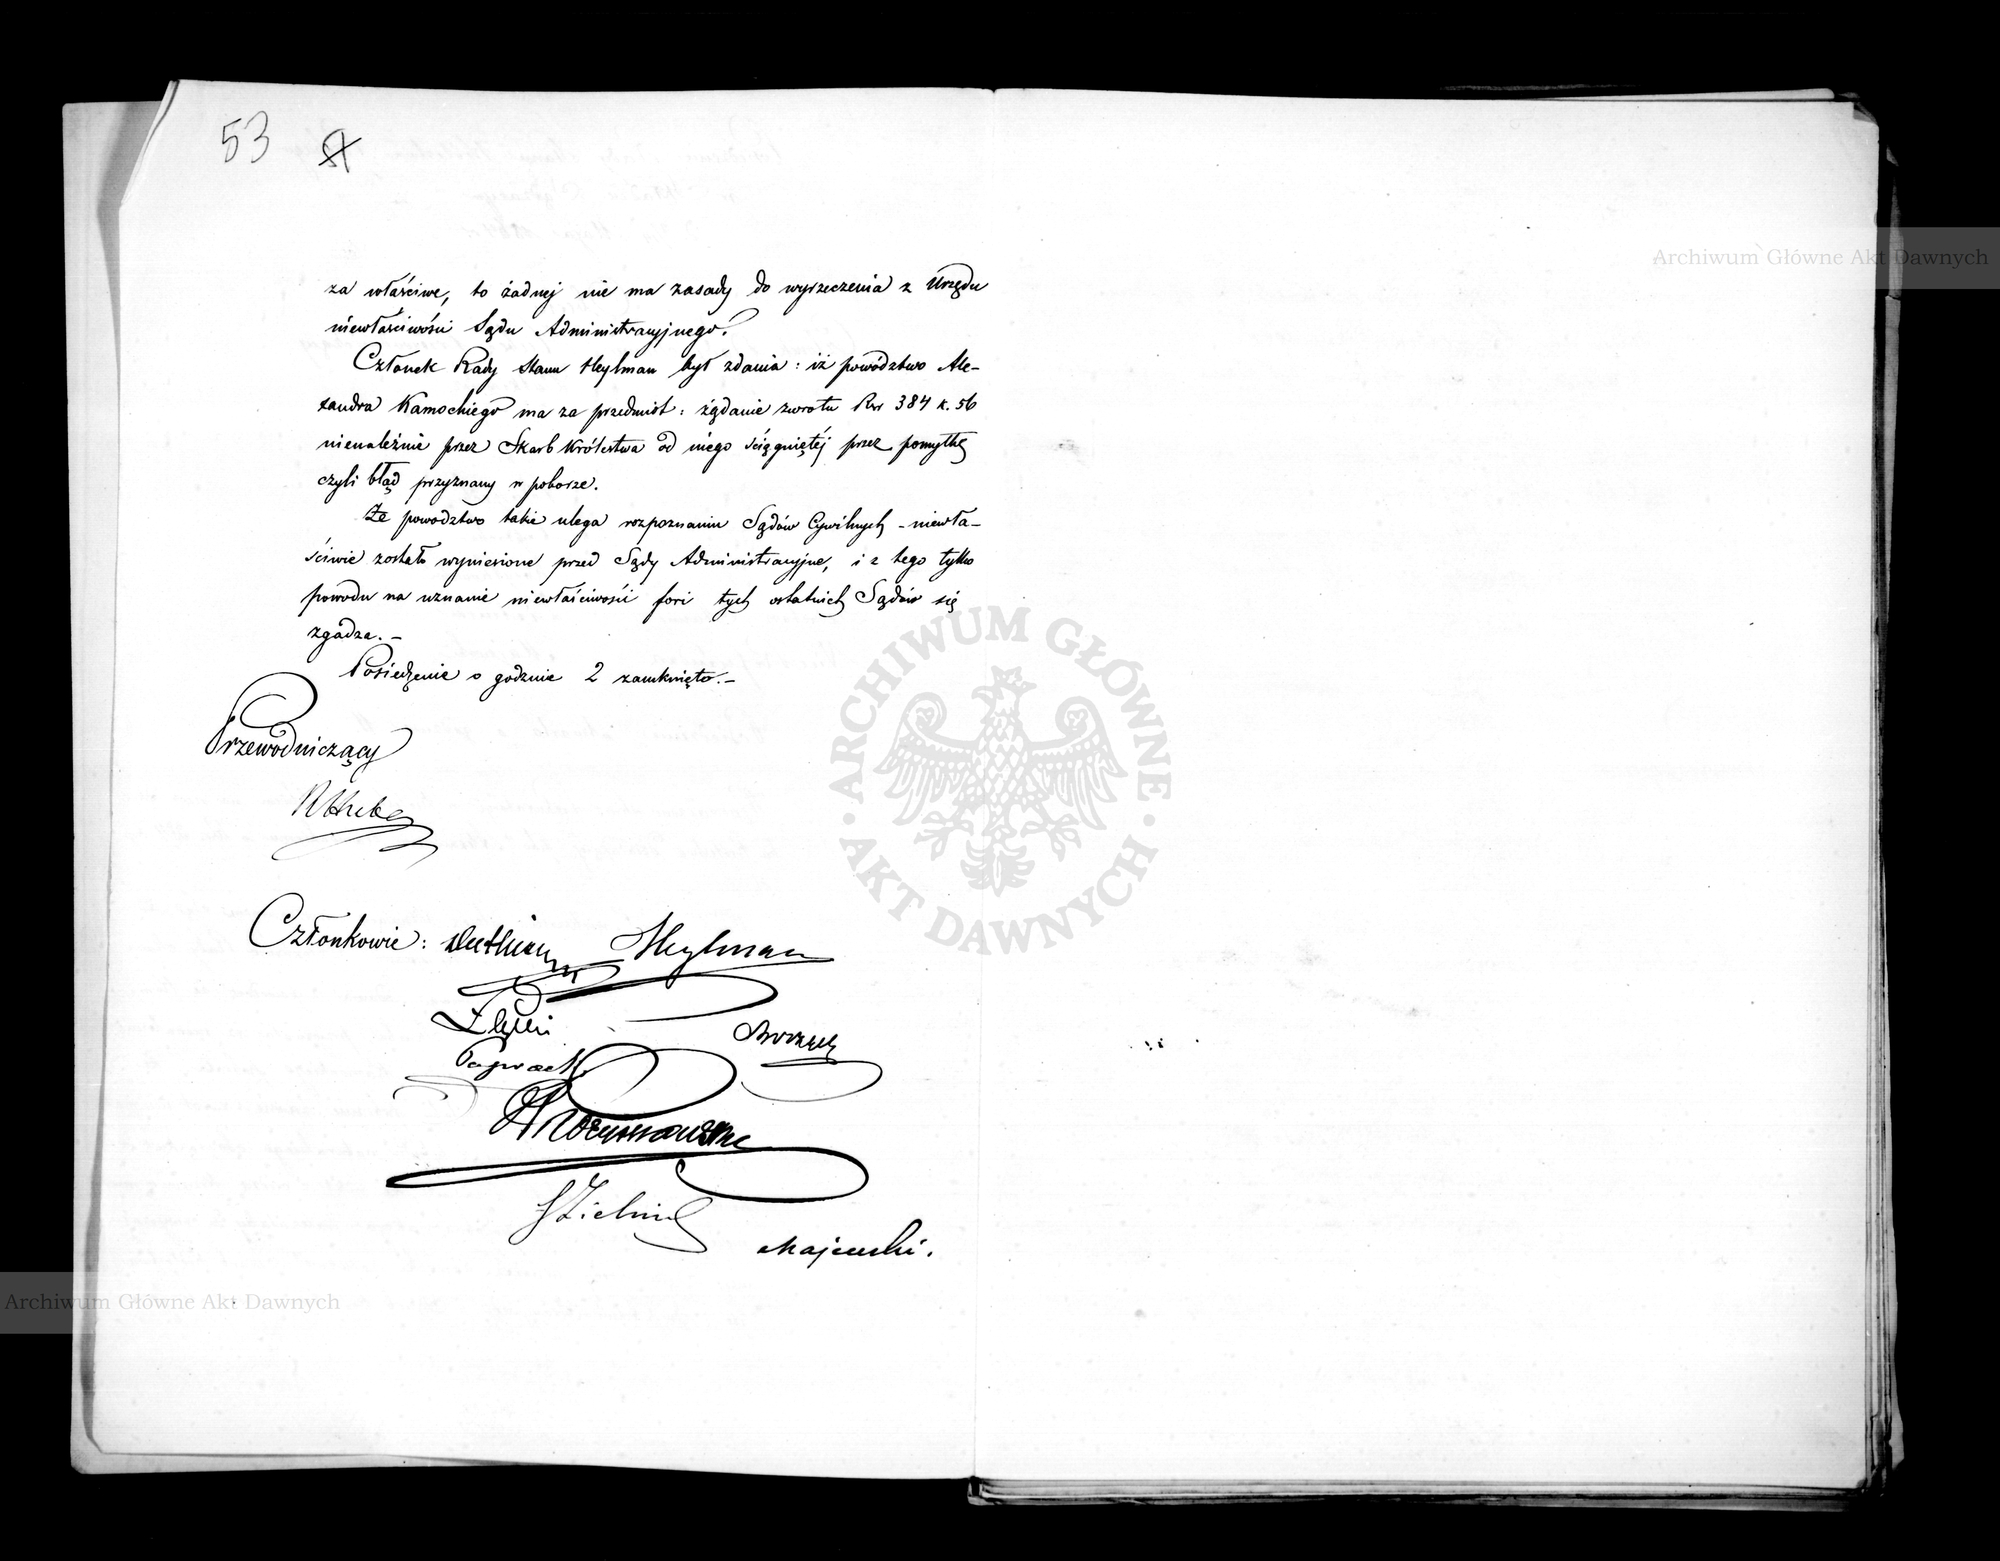 53
za właściwe, to żadnej nie ma zasady do wyrzeczenia z Urzędu
niewłaściwości Sądu Administracyjnego.
Członek Rady Stanu Heylman był zdania: iż powództwo Ale-
xandra Kamockiego ma za przedmiot: żądanie zwrotu Rsr 384 k. 56
nienależnie przez Skarb Królestwa od niego ściągniętéj przez pomyłkę
czyli błąd przyznany w poborze.
Że powodztwo takie ulega rozpoznaniu Sądów Cywilnych - niewła-
ściwie zostało wyniesione przed Sądy Administracyjne, i z tego tylko
powodu na uznanie niewłaściwości fori tych ostatnich Sądów się
zgadza. -
Posiedzenie o godzinie 2 zamknięto. -
Przewodniczący
RHube
Członkowie: Heylman
Majewski.
Archiwum Główne Akt Dawnych
Archiwum Główne Akt Dawnych
ARCHIWUM GŁÓWNE AKT DAWNYCH